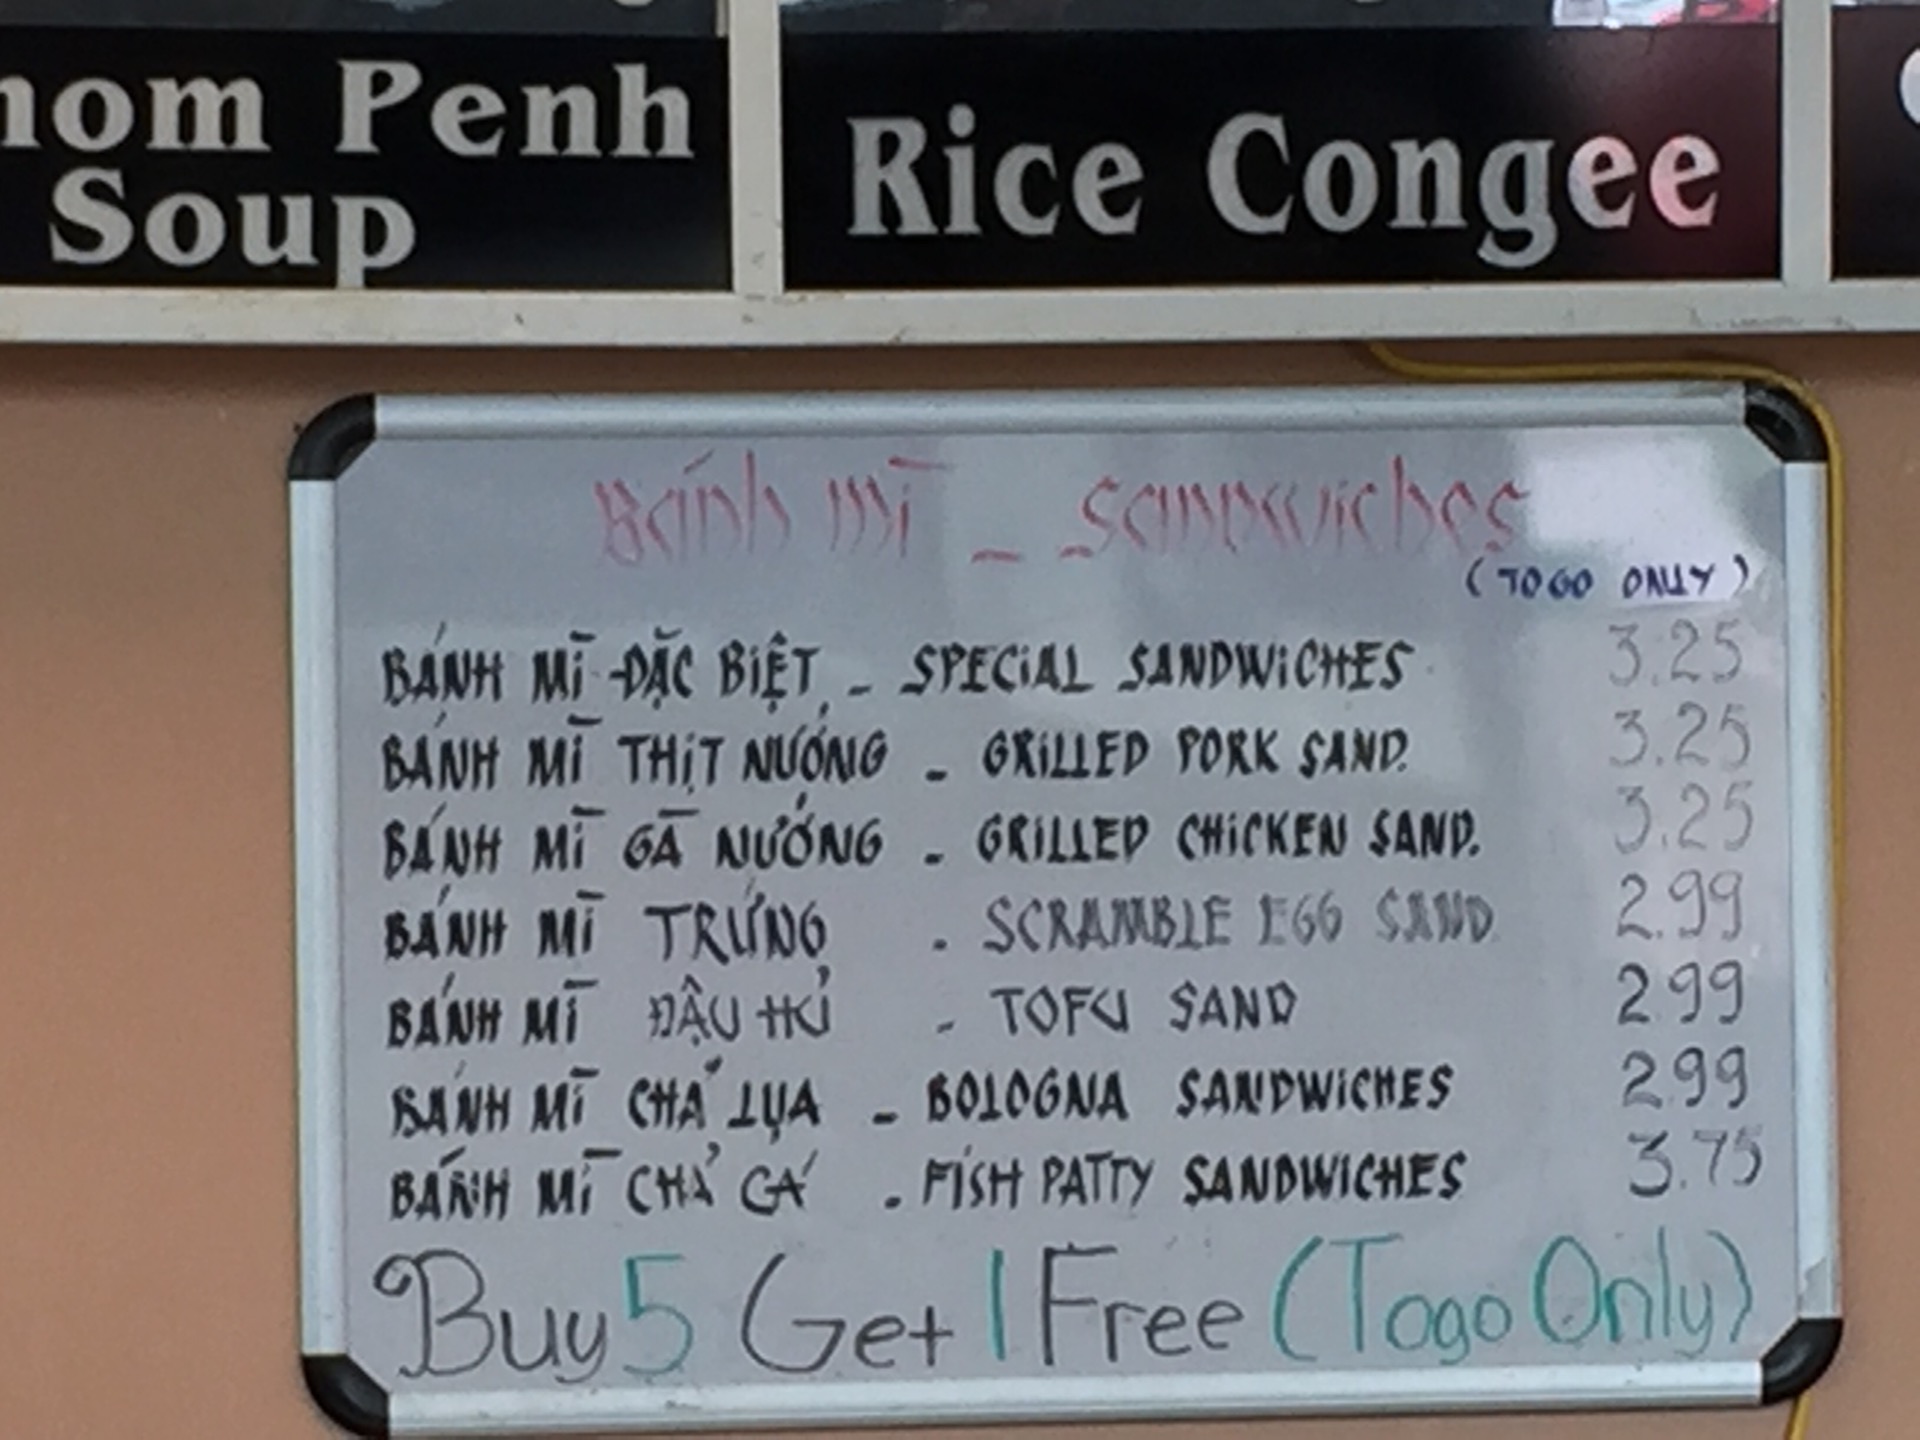 nom Penh
Soup
Rice Congee
Bánh mì - Sandwiches
(TOGO ONLY)
BÁNH MÌ ĐẶC BIỆT - SPECIAL SANDWICHES 3.25
BÁNH MÌ THỊT NƯỚNG - GRILLED PORK SAND. 3.25
BÁNH MÌ GÀ NƯỚNG - GRILLED CHICKEN SAND. 3.25
BÁNH MÌ TRỨNG - SCRAMBLE EGG SAND 2.99
BÁNH MÌ ĐẬU HỦ - TOFU SAND 2.99
BÁNH MÌ CHẢ LỤA - BOLOGNA SANDWICHES 2.99
BÁNH MÌ CHẢ CÁ - FISH PATTY SANDWICHES 3.75
Buy 5 Get 1 Free (Togo Only)